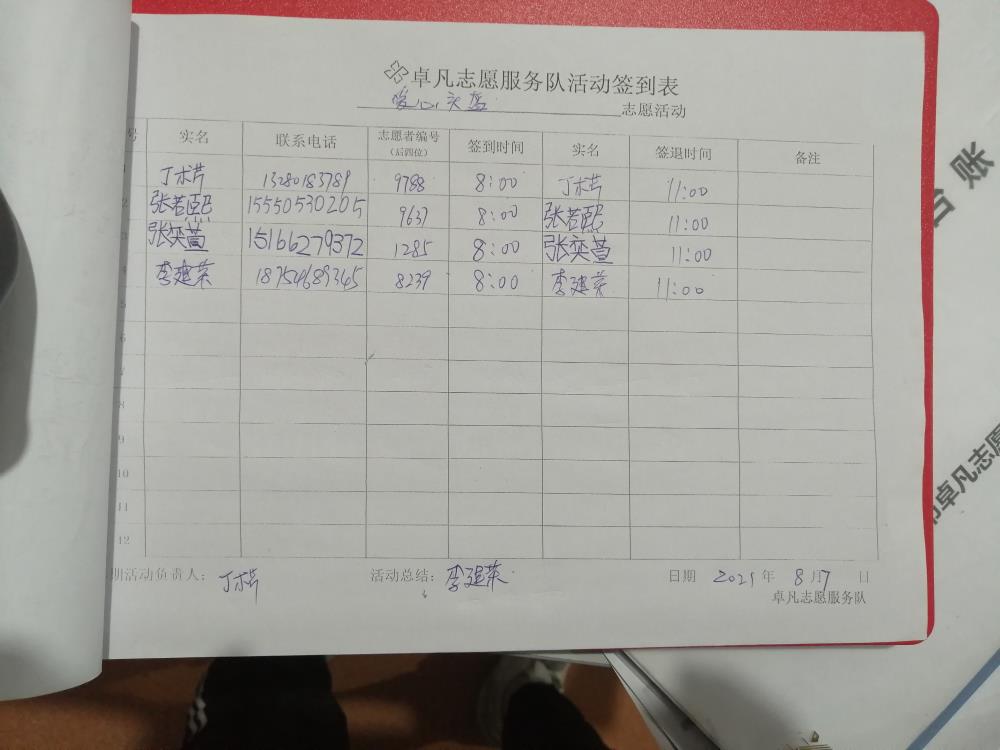 卓凡志愿服务队活动签到表
爱心头盔 志愿活动
号 实名 联系电话 志愿者编号（后四位） 签到时间 实名 签退时间 备注
丁术芹 13280183789 9788 8:00 丁术芹 11:00
2 张若熙 15550530205 9637 8:00 张若熙 11:00
3 张奕萱 15166279372 1285 8:00 张奕萱 11:00
4 李建荣 18754689345 8239 8:00 李建荣 11:00
5
6
7
8
9
10
11
12
期活动负责人： 丁术芹 活动总结： 李建荣 日期 2021年 8月7 日
卓凡志愿服务队
台账
卓凡志愿